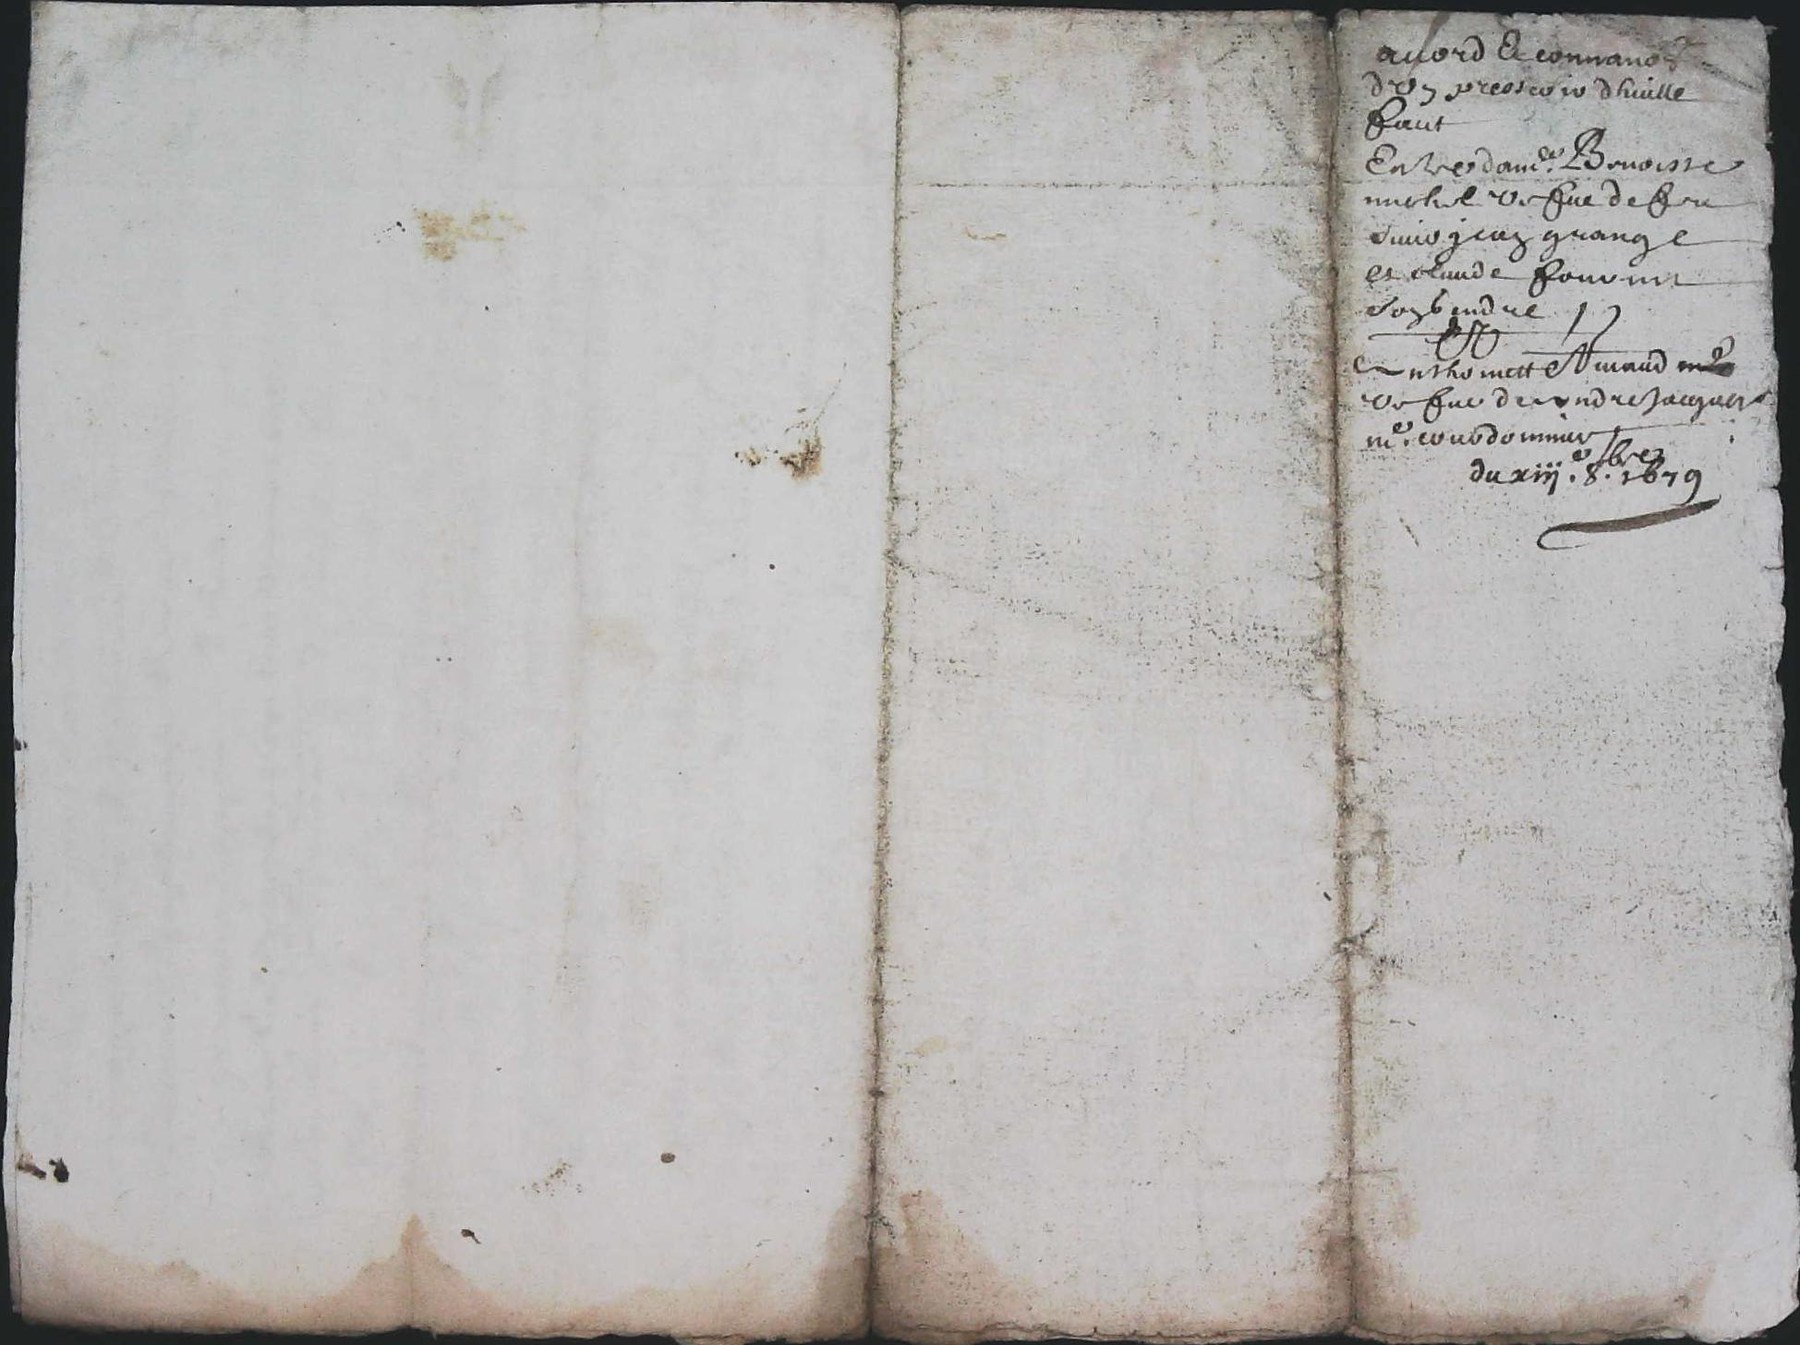 accord et
d'un pressoir d'huille
faict
Entre dam.e Benoiste
michel vefve de feu
Sieur jean grange
et claude
son gendre
Et
Anthoinett Arnaud
vefve de andre Jacques
m.e courdonnier
du xiij.e 8.bre 1679